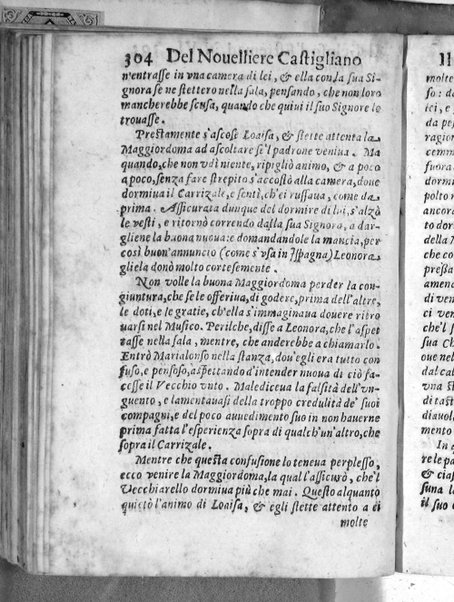 304 Del Nouelliere Castigliano
n'entrasse in vna camera di lei, & ella con la sua Si-
gnora se ne stettero nella sala, pensando, che non loro
mancherebbe scusa, quando che quiui il suo Signore le
trouasse.
Prestamente s'ascose Loaisa, & stette attenta la
Maggiordoma ad ascoltare se'l padrone veniua. Ma
quando, che non vdì niente, ripigliò animo, & a poco
a poco, senza fare strepito s'accostò alla camera, doue
dormiua il Carrizale, e sentì, ch'ei russaua, come da
prima. Assicurata dunque del dormire di lui, s'alzò
le vesti, e ritornò correndo dalla sua Signora, a dar-
gliene la buona nuoua: e domandandole la mancia, per
così buon'annuncio (come s'vsa in Ispagna) Leonora
gliela donò molto cortesemente.
Non volle la buona Maggiordoma perder la con-
giuntura, che se le offeriua, di godere, prima dell'altre,
le doti, e le gratie, ch'ella s'immaginaua douere ritro
uarsi nel Musico. Perilche, disse a Leonora, che l'aspet
tasse nella sala, mentre, che anderebbe a chiamarlo.
Entrò Marialonso nella stanza, dou'egli era tutto con
fuso, e pensoso, aspettando d'intender nuoua di ciò fa-
cesse il Vecchio vnto. Malediceua la falsità dell'vn-
guento, e lamentauasi della troppo credulità de' suoi
compagni, e del poco auuedimento suo in non hauerne
prima fatta l'esperienza sopra di qualch'vn'altro, che
sopra il Carrizale.
Mentre che questa confusione lo teneua perplesso,
ecco venire la Maggiordoma, la qual l'assicurò, che'l
Vecchiarello dormiua più che mai. Questo alquanto
quietò l'animo di Loaisa, & egli stette attento a ei
molte